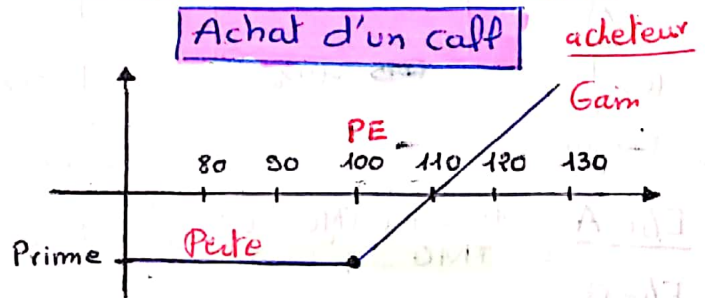 Achat d'un call
acheteur
Gain
PE
80 90 100 110 120 130
Prime
Perte